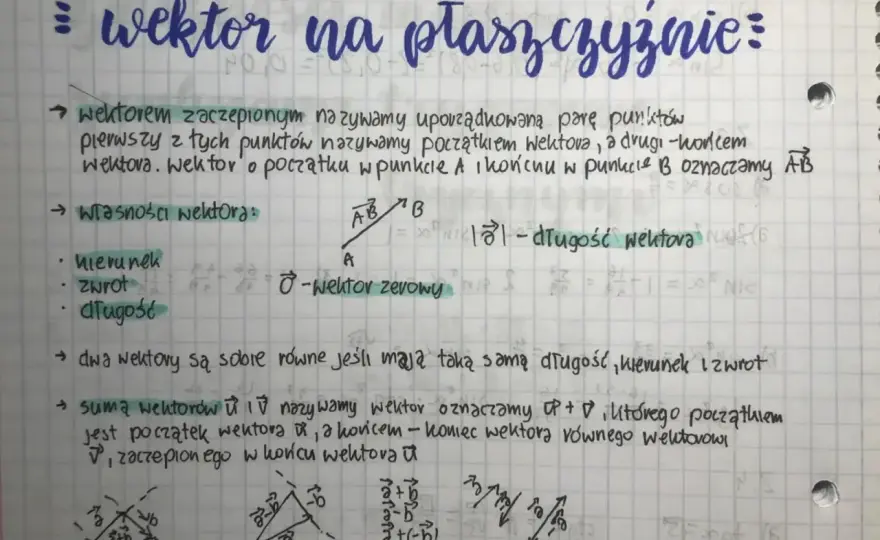 wektor na płaszczyźnie
→ wektorem zaczepionym nazywamy uporządkowaną parę punktów
pierwszy z tych punktów nazywamy początkiem wektora, a drugi - końcem
wektora. Wektor o początku w punkcie A i końcu w punkcie B oznaczamy A⃗B⃗
→ własności wektora:
A⃗B⃗ B
A
|a⃗| - długość wektora
· kierunek
· zwrot
0⃗ - wektor zerowy
· długość
→ dwa wektory są sobie równe jeśli mają taką samą długość, kierunek i zwrot
→ sumą wektorów u⃗ i v⃗ nazywamy wektor oznaczamy u⃗ + v⃗, którego początkiem
jest początek wektora u⃗, a końcem - koniec wektora równego wektorowi
v⃗, zaczepionego w końcu wektora u⃗
a⃗ a⃗-b⃗ -b⃗ a⃗+b⃗
a⃗-b⃗
a⃗+(-b⃗)